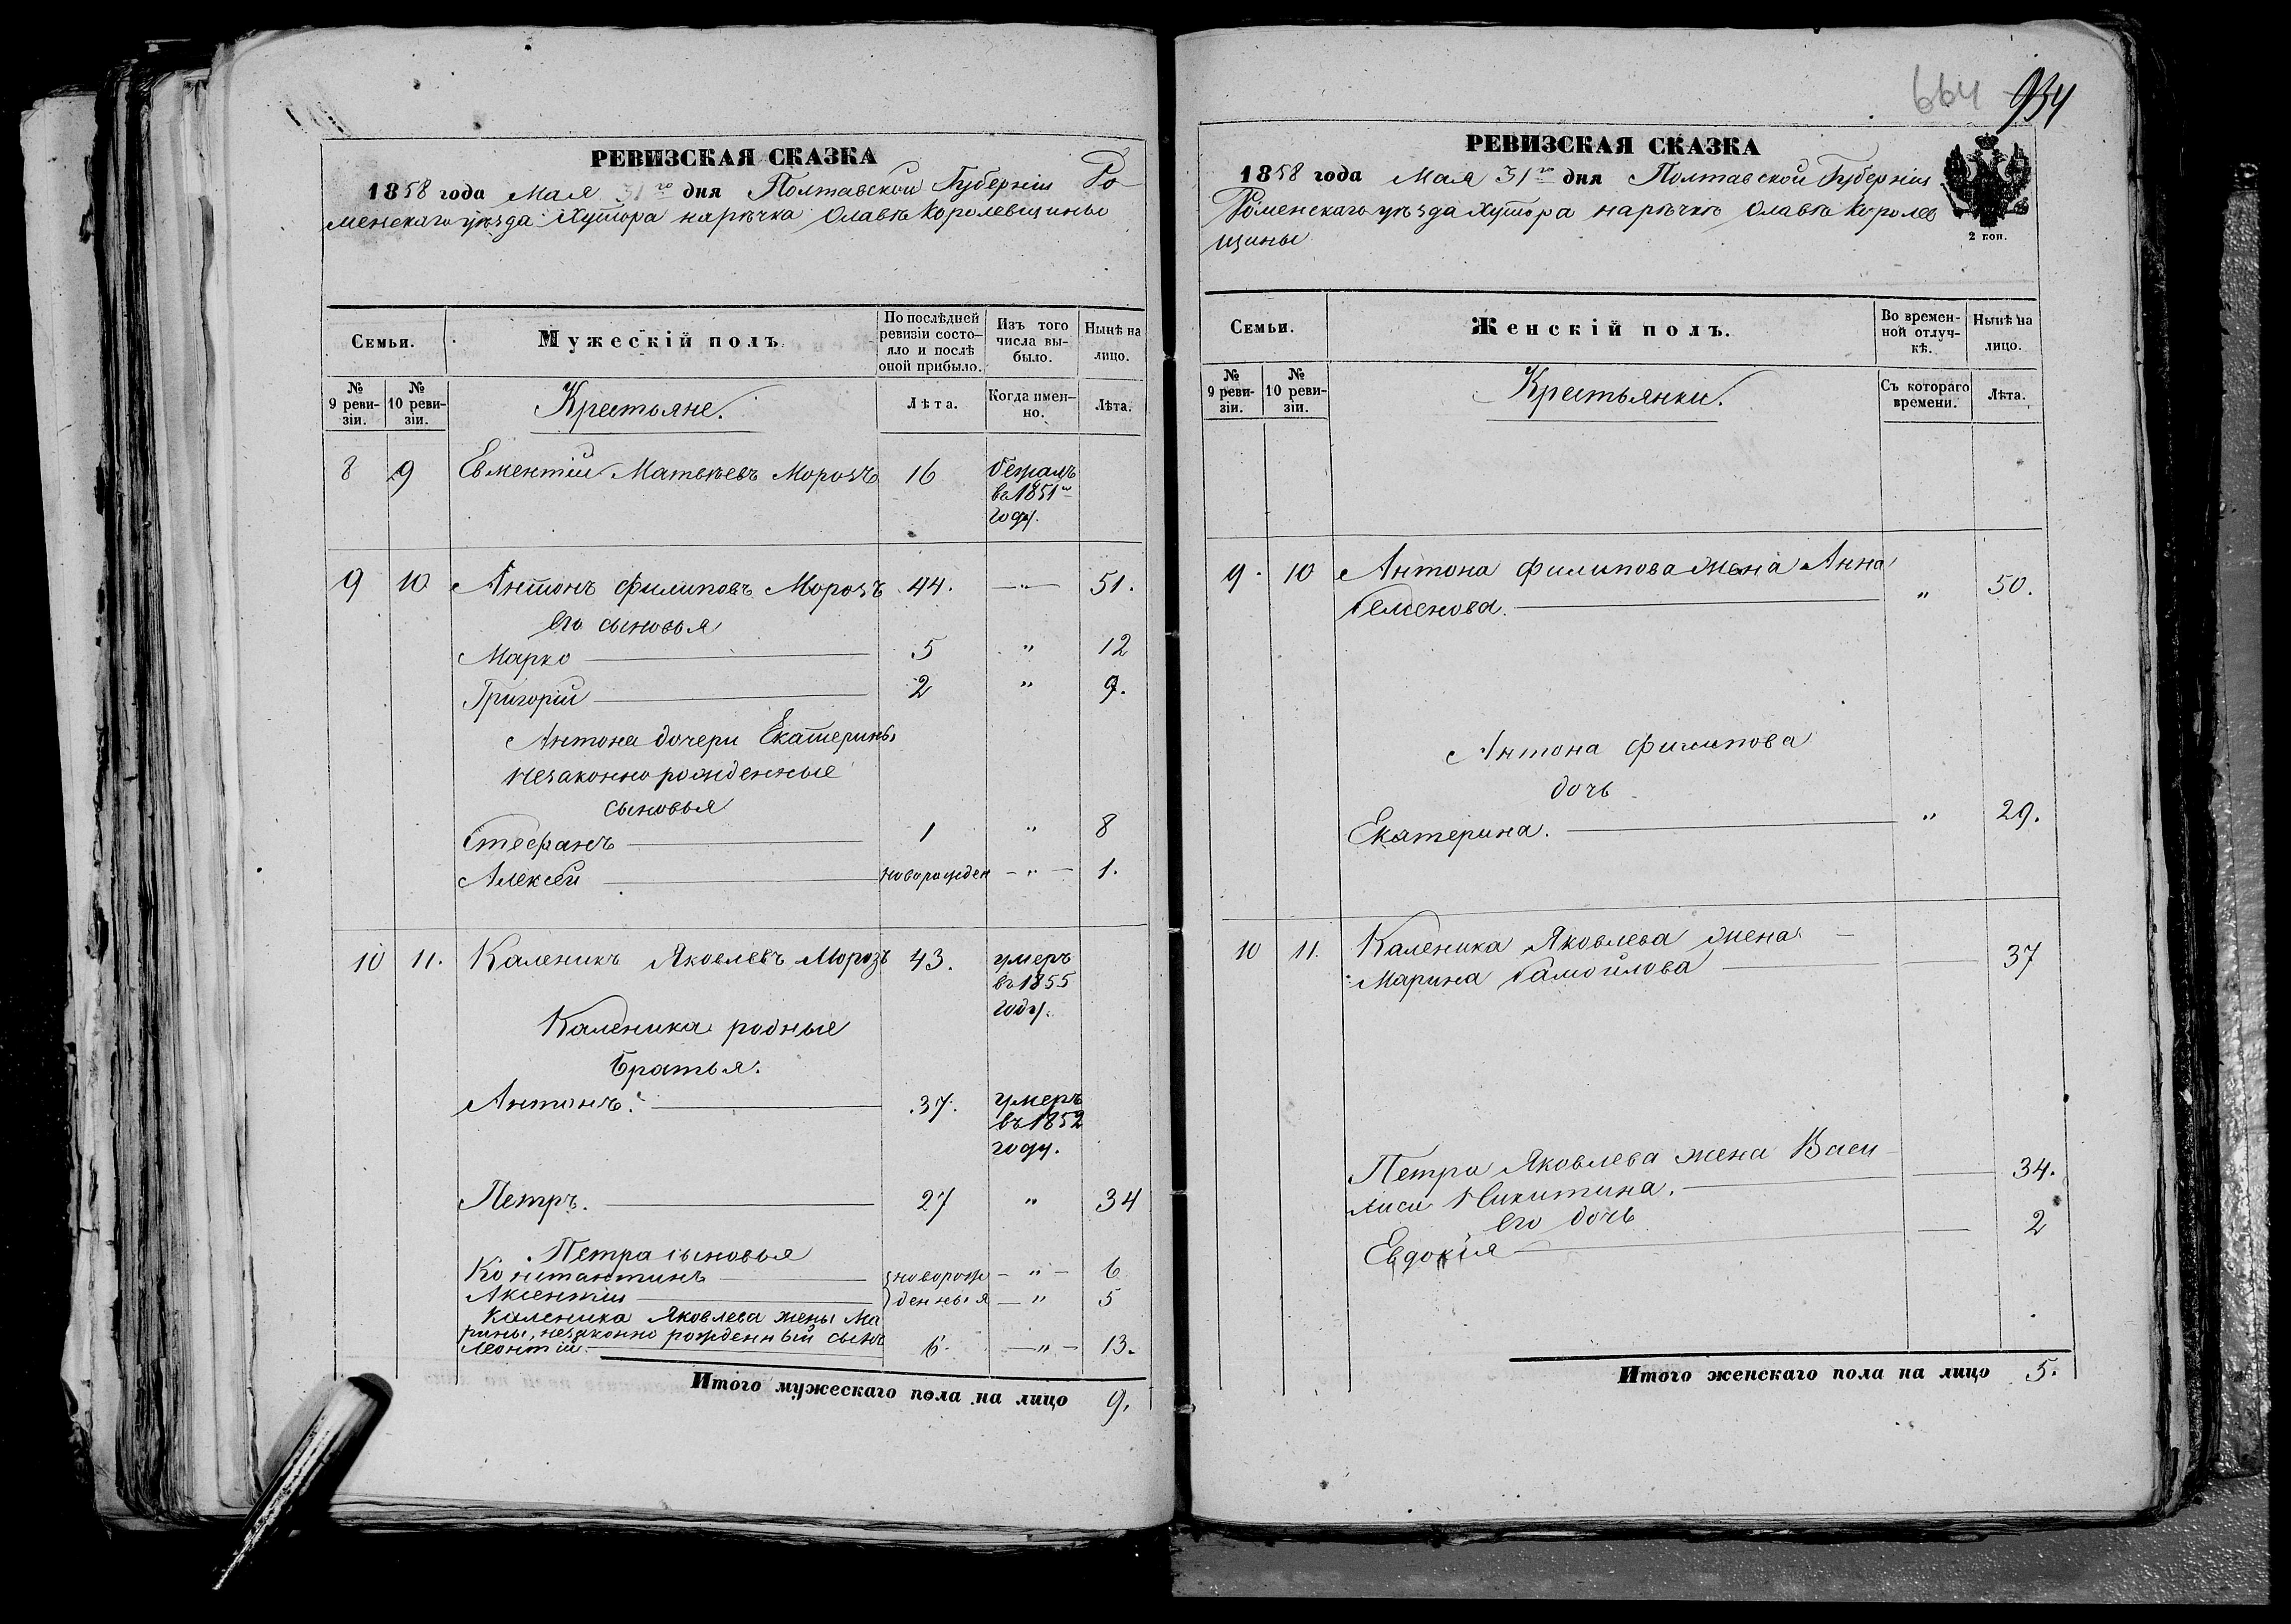 РЕВИЗСКАЯ СКАЗКА
1858 года Мая 31го дня Полтавской Губерніи Ро
менскаго уѣзда Хутора нарѣчкѣ Олавѣ Королевщины
Семьи.
Мужескій полъ
По послѣдней ревизіи состо-
яло и послѣ оной прибыло.
Изъ того числа вы-
было.
Нынѣ на лицо.
№ 9 реви-
зіи.
№ 10 реви-
зіи.
Крестьяне.
Лѣта.
Когда имен-
но.
Лѣта.
8 9 Евментій Матвѣевъ Морозъ 16 бежалъ
въ 1851м
году.
9 10 Антонъ Филиповъ Морозъ 44. —"— 51.
его сыновья
Марко 5 " 12
Григорій 2 " 9.
Антона дочери Екатерины
незаконнорожденные
сыновья
Стефанъ 1 " 8
Алексѣй новорожден —"— 1.
10 11. Каленикъ Яковлевъ Морозъ 43. умеръ
въ 1855
году.
Каленика родные
братья.
Антонъ. 37. умеръ
въ 1852
году.
Петръ. 27 " 34
Петра сыновья
Константинъ новорож —"— 6
Аксентій денныя —" 5
Каленика Яковлева жены Ма
рины, незаконно рожденный сынъ
Леонтій 6. —"— 13.
Итого мужескаго пола на лицо 9.
664 934
РЕВИЗСКАЯ СКАЗКА
1858 года Мая 31го дня Полтавской Губерніи
Роменскаго уѣзда Хутора нарѣчкѣ Олавѣ Королев
щины
2 коп.
Семьи.
Женскій полъ.
Во времен-
ной отлуч-
кѣ.
Нынѣ на лицо.
№ 9 реви-
зіи.
№ 10 реви-
зіи.
Крестьянки.
Съ котораго времени.
Лѣта.
9. 10 Антона Филипова жена Анна
Семенова. " 50.
Антона Филипова
дочь
Екатерина. " 29.
10 11. Каленика Яковлева жена —
Марина Самойлова — 37
Петра Яковлева жена Васи
лиса Никитина. — 34.
его дочь
Евдокія — 2
Итого женскаго пола на лицо 5.